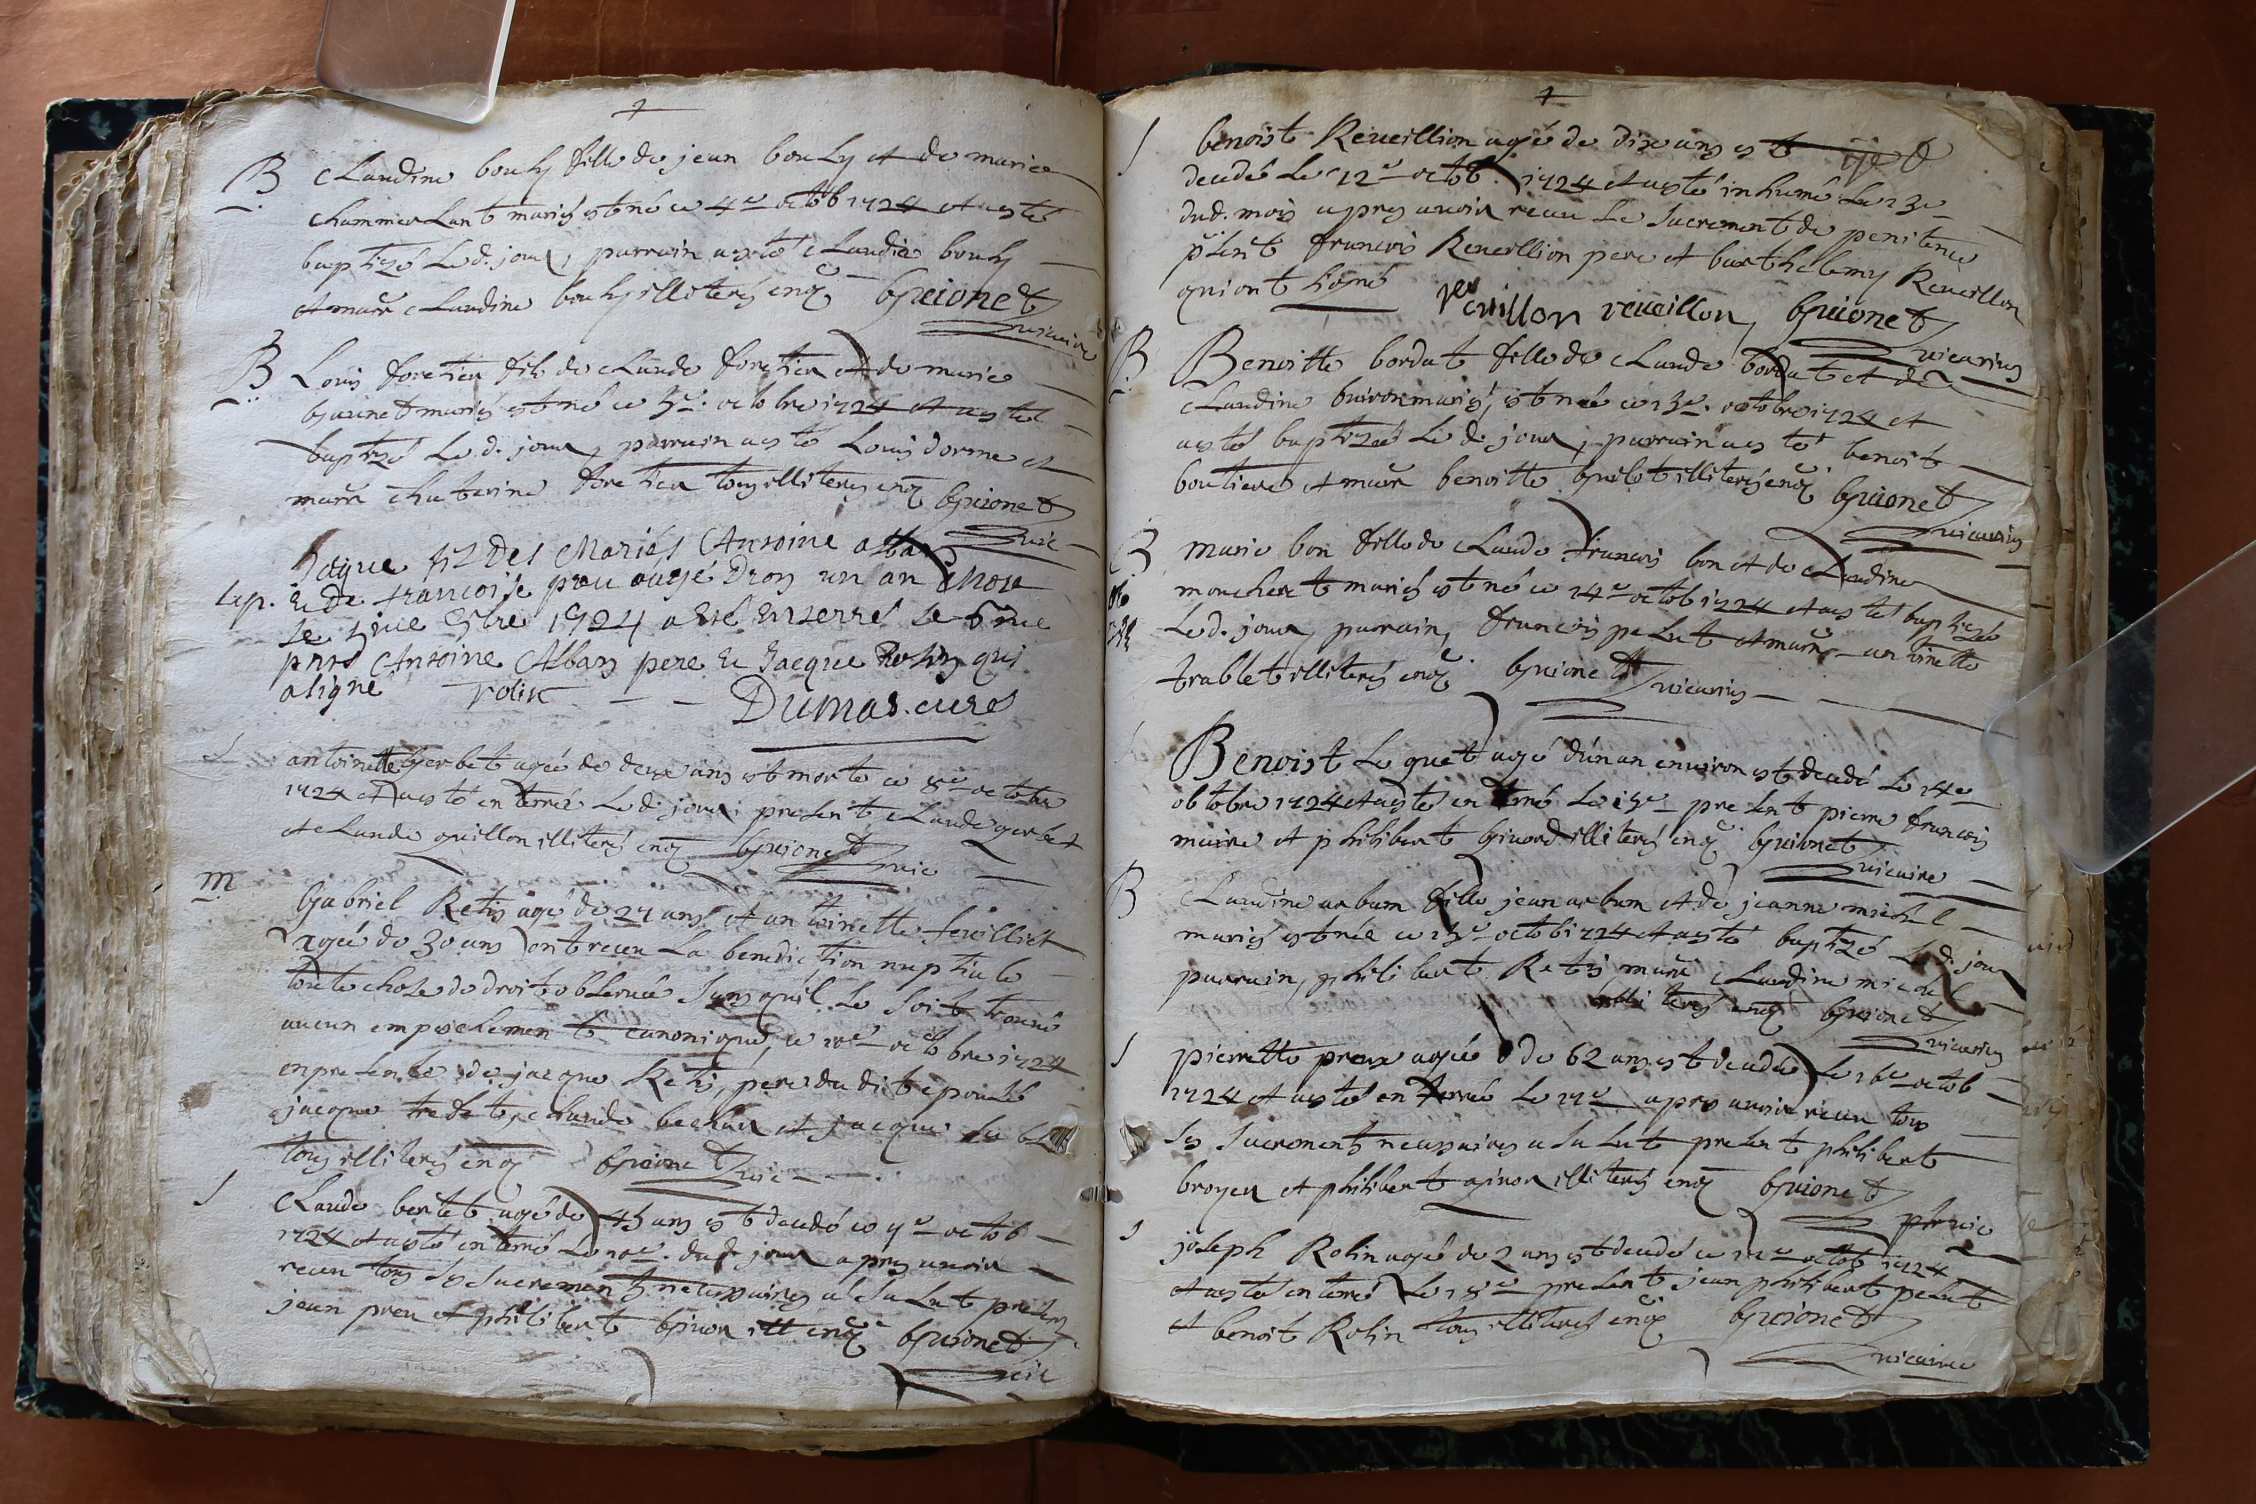 B Claudine bouly fille de jean bouly et de marie
chammerlant mariés est né ce 4e octob 1724 et a esté
baptizé Led. jour, parrain a esté Claudia bouly
et marr Claudine bouly illiterés enq Guionet
vicaire
B Louis foretier fils de Claude foretier et de marie
Guinet mariés est né ce 5e. octobre 1724 et a esté
baptizé Le d. jour, parrain a esté Louis dorme et
marr Chaterine foretier tous illiterés enq Guionet
vic
Jaque fiz des Mariés Antoine alban
Sep. Et de francoise preu augé Dron un an mort
le 5me 8bre 1724 a Esté Enterré le 6me
pnts Antoine Alban pere Et Jacque Rolin qui
a signé rolin Dumas. curé
S antoinette gerbet agée de deux ans est morte ce 8e octobre
1724 et a esté enterrée Le d. jour, present Claude gerbet
et Claude guillon illiterés enq Guionet
vic
M Gabriel Retis agé de 27 ans et antoinette feuilliet
agée de 30 ans ont receu La benediction nuptiale
toute chose de droit observée sans quil se soit trouvé
aucun empeschement canonique, ce 10e octobre 1724
en presence de jacque Retis, pere dudit epoux
jacque tredet, Claude bechar et jacque
tous illiterés enq Guionet vic
S Claude bertet agé de 45 ans est decedé ce 9e octob
1724 et a esté enterré Le 10e. dud. jour apres avoir
receu tous Les Sacrements necessaires a Salut presens
jean preu et philibert Guior ill enq Guionet
vic
S benoist Reveillion agé de dix ans est
decedé Le 12e octob. 1724 et a esté inhumé Le 13e
dud. mois apres avoir receu Le Sacrement de penitence
present francois Reveillion pere et barthelemy Reveillon
qui ont signé Revillon reveillon, Guionet
vicarius
B Benoitte bordat fille de Claude bordat et de
Claudine buiron mariés, est née ce 13e. octobre 1724 et
a esté baptizée Le d. jour, parrain a esté benoit
boutiere et marr benoitte Guilot illiterés enq Guionet
vicarius
B marie bon fille de Claude francois bon et de Claudine
moucheret mariés est né ce 14e octob 1724 et a esté baptizée
Le d. jour, parrain, francois pelut et marr antoinette
trablet illiterés enq Guionet vicarius
Benoist Loquet agé dun an environ est decedé Le 14e
octobre 1724 et a esté enterré Le 15e present pierre francois
maire et philibert Givord illiterés enq Guionet
vicaire
B Claudine arbam fille jean arbam et de jeanne michel
mariés est née ce 15e octob 1724 et a esté baptizé Le d. jour
parrain, philibert Retis marr Claudine michel
illiterés enq Guionet
vicarius
S pierrette preux agée de 62 ans est decedée Le 16e octob
1724 et a esté enterrée Le 17e apres avoir receu tous
Les Sacrements necessaires a Salut present philibert
broyer et philibert guior illiterés enq Guionet
vic
S joseph Rolin agé de 2 ans est decedé ce 17e octob 1724
et a esté enterré Le 18e present jean philibert pelut
et benoit Rolin tous illiterés enq Guionet
vicaire